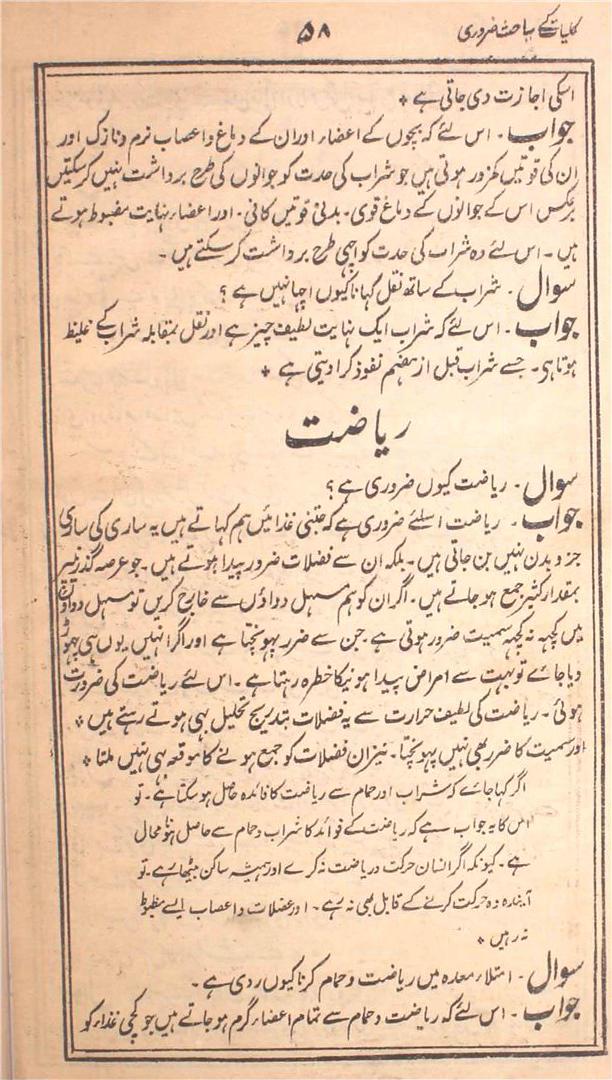 کلیات کے مباحث ضروری ۵۸
اسکی اجازت دی جاتی ہے *
جواب۔ اس لئے کہ بچوں کے اعضاء اوران کے دماغ واعصاب نرم ونازک اور
ان کی قوتیں کمزور ہوتی ہیں جو شراب کی حدت کو جوانوں کی طرح برداشت نہیں کرسکتیں
برعکس اس کے جوانوں کے دماغ قوی۔ بدنی قوتیں کافی۔ اور اعضاء نہایت مضبوط ہوتے
ہیں۔ اس لئے وہ شراب کی حدت کو اچہی طرح برداشت کرسکتے ہیں۔
سوال۔ شراب کے ساتھ نقل کہانا کیوں اچہا نہیں ہے ؟
جواب۔ اس لئے کہ شراب ایک نہایت لطیف چیز ہے اور نقل بمقابلہ شراب کے غلیظ
ہوتا ہی۔ جسے شراب قبل از ہضم نفوذ کرادیتی ہے *
ریاضت
سوال۔ ریاضت کیوں ضروری ہے ؟
جواب۔ ریاضت اسلئے ضروری ہے کہ جتنی غذائیں ہم کہاتے ہیں یہ ساری کی ساری
جزو بدن نہیں بن جاتی ہیں۔ بلکہ ان سے فضلات ضرور پیدا ہوتے ہیں۔ جو عرصہ گذرنے پر
بمقدار کثیر جمع ہو جاتے ہیں۔ اگر ان کو ہم مسہل دواؤں سے خارج کریں تو مسہل دواؤں
میں کچہہ نہ کچہہ سمیت ضرور ہوتی ہے جن سے ضرر پہونچتا ہے اور اگر انہیں یوں ہی چہوڑ
دیا جاے تو بہت سے امراض پیدا ہونیکا خطرہ رہتا ہے۔ اس لئے ریاضت کی ضرورت
ہوئی۔ ریاضت کی لطیف حرارت سے یہ فضلات بتدریج تحلیل بہی ہوتے رہتے ہیں *
اور سمیت کا ضرر بھی نہیں پہونچتا۔ نیز ان فضلات کو جمع ہونے کا موقعہ ہی نہیں ملتا *
اگر کہا جاے کہ شراب اور حمام سے ریاضت کا فائدہ حاصل ہو سکتا ہے۔ تو
اس کا یہ جواب ہے کہ ریاضت کے فوائد کا شراب و حمام سے حاصل ہونا محال
ہے۔ کیونکہ اگر انسان حرکت و ریاضت نہ کرے اور ہمیشہ ساکن بیٹھا رہے۔ تو
آیندہ وہ حرکت کرنے کے قابل بھی نہ رہے۔ اور عضلات و اعصاب ایسے مضبوط
نہ رہیں *
سوال۔ امتلاء معدہ میں ریاضت و حمام کرنا کیوں ردی ہے۔
جواب۔ اس لئے کہ ریاضت و حمام سے تمام اعضاء گرم ہو جاتے ہیں جو کچی غذاء کو